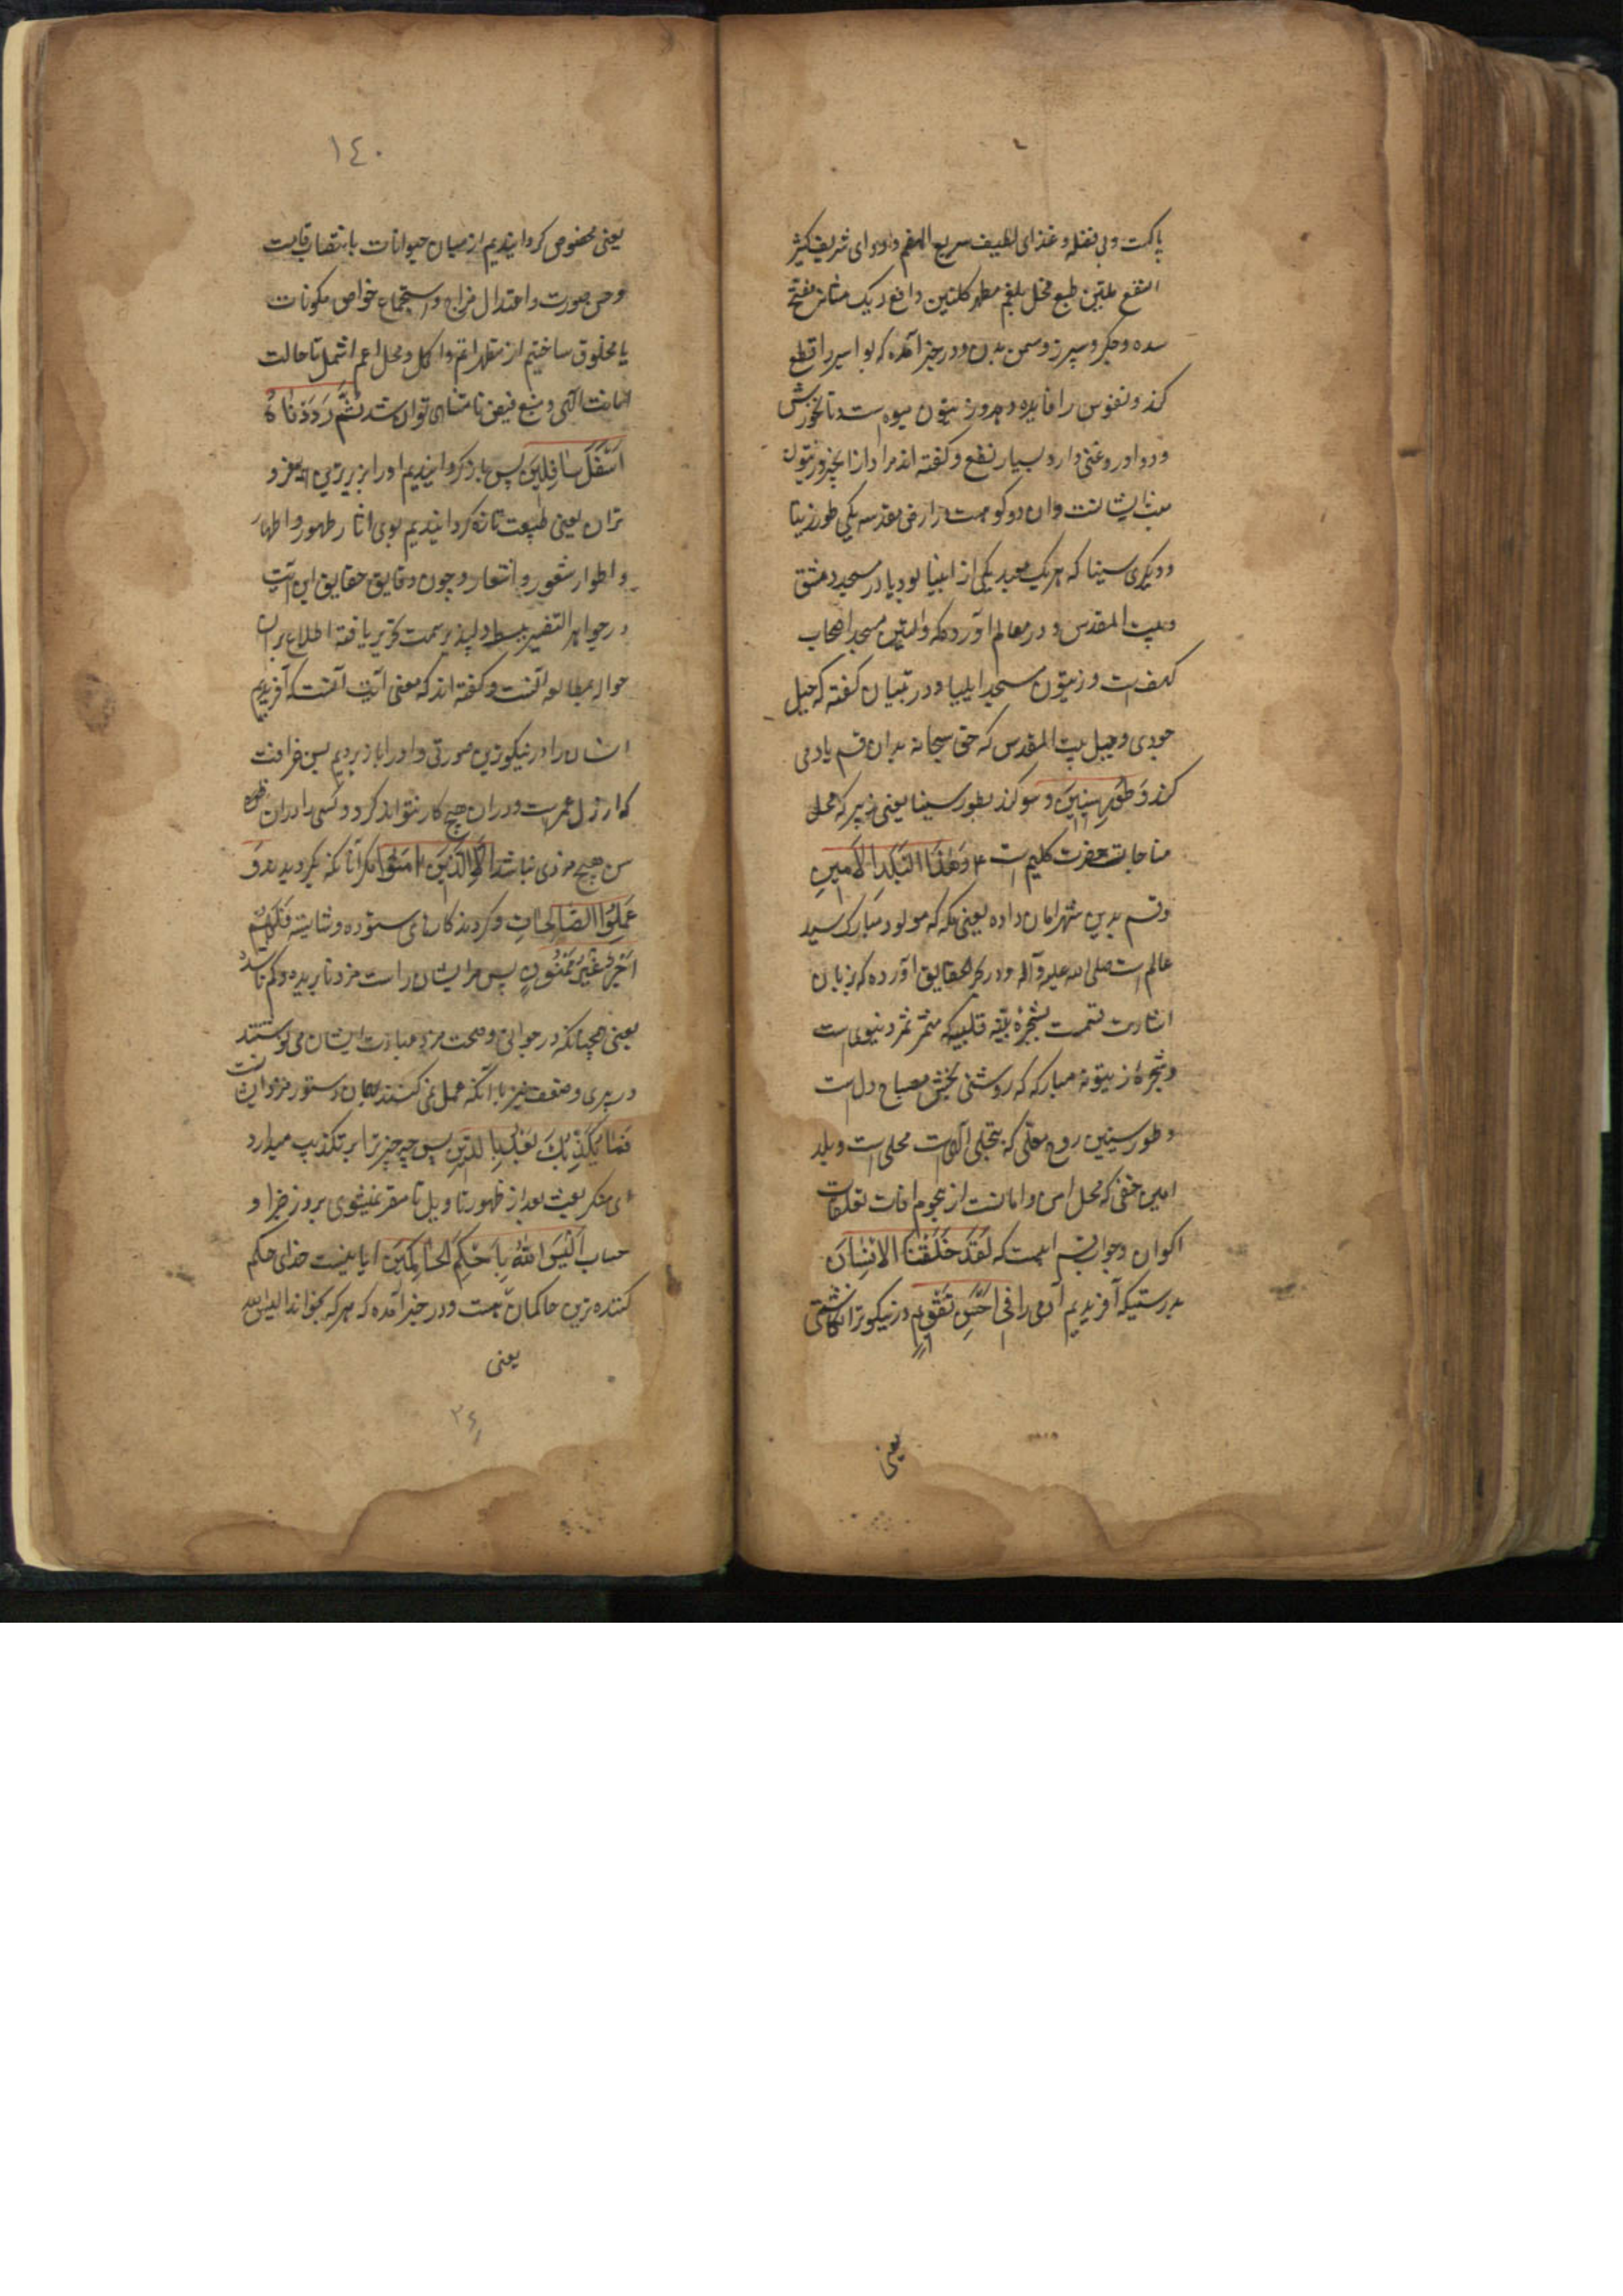 پاکست و بی ثفله و غذای لطیف سریع الهضم و دوای شریف کثیر
النفع ملین طبع محلل بلغم مطهر کلیتین دافع ریک مثانه مفتح
سده و جگر و سپرز و مسمن بدن و در خبر آمده که بواسیر را قطع
کند و نقرس را فایده دهد و زیتون میوه است و نانخورش
و دوا و روغنی دارد بسیار نفع و گفته اند مراد از انجیر و زیتون
منبت ایشانست و ان دو کوهست از ارض مقدسه یکی طور زیتا
و دیگری سینا که هر یک معبد یکی از انبیا بود یا در مسجد دمشق
و بیت المقدس و در معالم آورده که والتین مسجد اصحاب
کهف است و زیتون مسجد ایلیا و در تبیان گفته که جبل
جودی و جبل بیت المقدس که حق سبحانه بدان قسم یاد می
کند وَطُورِ سِینِینَ و سوگند بطور سینا یعنی زبیر که محل
مناجات حضرت کلیم است ۴ وَهٰذَا الْبَلَدِ الْاَمِینِ
و قسم بدین شهر امان داده یعنی مکه که مولود مبارک سید
عالم است صلی الله علیه وآله و در بحر الحقایق آورده که بزبان
اشارت قسمست بشجره تینه قلبیه که مثمر ثمر دنیوی است
و شجره زیتونه مبارکه که روشنی بخش مصباح دل است
و طور سینین روح معلی که بتجلی الهی است محلی است و بلد
امین خفی که محل امن و امانست از هجوم افات تعلقات
اکوان و جواب قسم اینست که لَقَدْ خَلَقْنَا الْاِنْسَانَ
بدرستیکه آفریدیم آدمی را فِی اَحْسَنِ تَقْوِیمٍ در نیکوتر نگاشتی
یعنی
١٤٠
یعنی مخصوص گردانیدیم از میان حیوانات بانتصاب قامت
و حسن صورت و اعتدال مزاج و استجماع خواص مکونات
یا مخلوق ساختیم از مظهر اتم و اکمل و محل اعم اشمل تا حالت
امانت الهی و منبع فیض نامتناهی تواند شد ثُمَّ رَدَدْنَاهُ
اَسْفَلَ سَافِلِینَ پس باز گردانیدیم او را بزیرترین همه فرو
تران یعنی طبیعت تازه گردانیدیم بوی اثار ظهور و اظهار
و اطوار شعور و اشعار و چون دقایق حقایق این آیت
در جواهر التفسیر ببسط دلپذیر سمت تحریر یافته اطلاع بران
حواله بمطالعه آنست و گفته اند که معنی آیت آنست که آفریدیم
انسان را در نیکوترین صورتی و او را باز بردیم بسن خرافت
که ارذل عمر است و در ان هیچ کار نتواند کرد و کسی را در ان
سن هیچ مزدی نباشد اِلَّا الَّذِینَ اٰمَنُوا مگر آنانکه بگرویدند وَ
عَمِلُوا الصَّالِحَاتِ و کردند کارهای ستوده و شایسته فَلَهُمْ
اَجْرٌ غَیْرُ مَمْنُونٍ پس مر ایشان راست مزد نا بریده و کم ناشده
یعنی همچنانکه در جوانی و صحت مزد عبادت ایشان می نوشتند
در پیری و ضعف نیز با آنکه عمل نمی کنند همان دستور مزد ایشانست
فَمَا یُکَذِّبُکَ بَعْدُ بِالدِّینِ پس چه چیز ترا بر تکذیب میدارد
ای منکر بعث بعد از ظهور تا بروز جزا و
حساب اَلَیْسَ اللهُ بِاَحْکَمِ الْحَاکِمِینَ ایا نیست خدای حکم
کننده ترین حاکمان هست و در خبر آمده که هر که بخواند الیس الله
یعنی